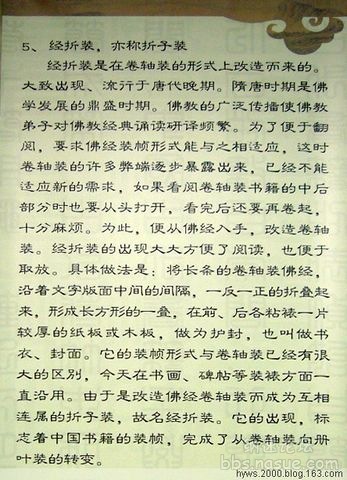 5、 经折装，亦称折子装
经折装是在卷轴装的形式上改造而来的。
大致出现、流行于唐代晚期。隋唐时期是佛
学发展的鼎盛时期。佛教的广泛传播使佛教
弟子对佛教经典诵读研译频繁。为了便于翻
阅，要求佛经装帧形式能与之相适应，这时
卷轴装的许多弊端逐步暴露出来，已经不能
适应新的需求，如果看阅卷轴装书籍的中后
部分时也要从头打开，看完后还要再卷起，
十分麻烦。为此，便从佛经入手，改造卷轴
装。经折装的出现大大方便了阅读，也便于
取放。具体做法是：将长条的卷轴装佛经，
沿着文字版面中间的间隔，一反一正的折叠起
来，形成长方形的一叠，在前、后各粘裱一片
较厚的纸板或木板，做为护封，也叫做书
衣、封面。它的装帧形式与卷轴装已经有很
大的区别，今天在书画、碑帖等装裱方面一
直沿用。由于是改造佛经卷轴装而成为互相
连属的折子装，故名经折装。它的出现，标
志着中国书籍的装帧，完成了从卷轴装向册
叶装的转变。
bbs.nasue.com
hyws.2000.blog.163.com